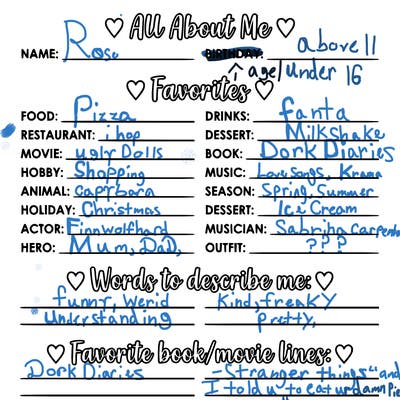 ♡ All About Me ♡
NAME: Rose BIRTHDAY: above 11
↑ age/under 16
♡ Favorites ♡
FOOD: Pizza DRINKS: fanta
RESTAURANT: ihop DESSERT: Milkshake
MOVIE: ugly Dolls BOOK: Dork Diaries
HOBBY: Shopping MUSIC: Love songs, Krama
ANIMAL: capybara SEASON: Spring, Summer
HOLIDAY: Christmas DESSERT: Ice Cream
ACTOR: Finnwolfhard MUSICIAN: Sabrina carpenter
HERO: Mum, DaD, OUTFIT: ???
♡ Words to describe me: ♡
funny, werid kind, freaky
understanding pretty,
♡ Favorite book/movie lines: ♡
Dork Diaries - Stranger things "and
I told u to eat ur damn Pie